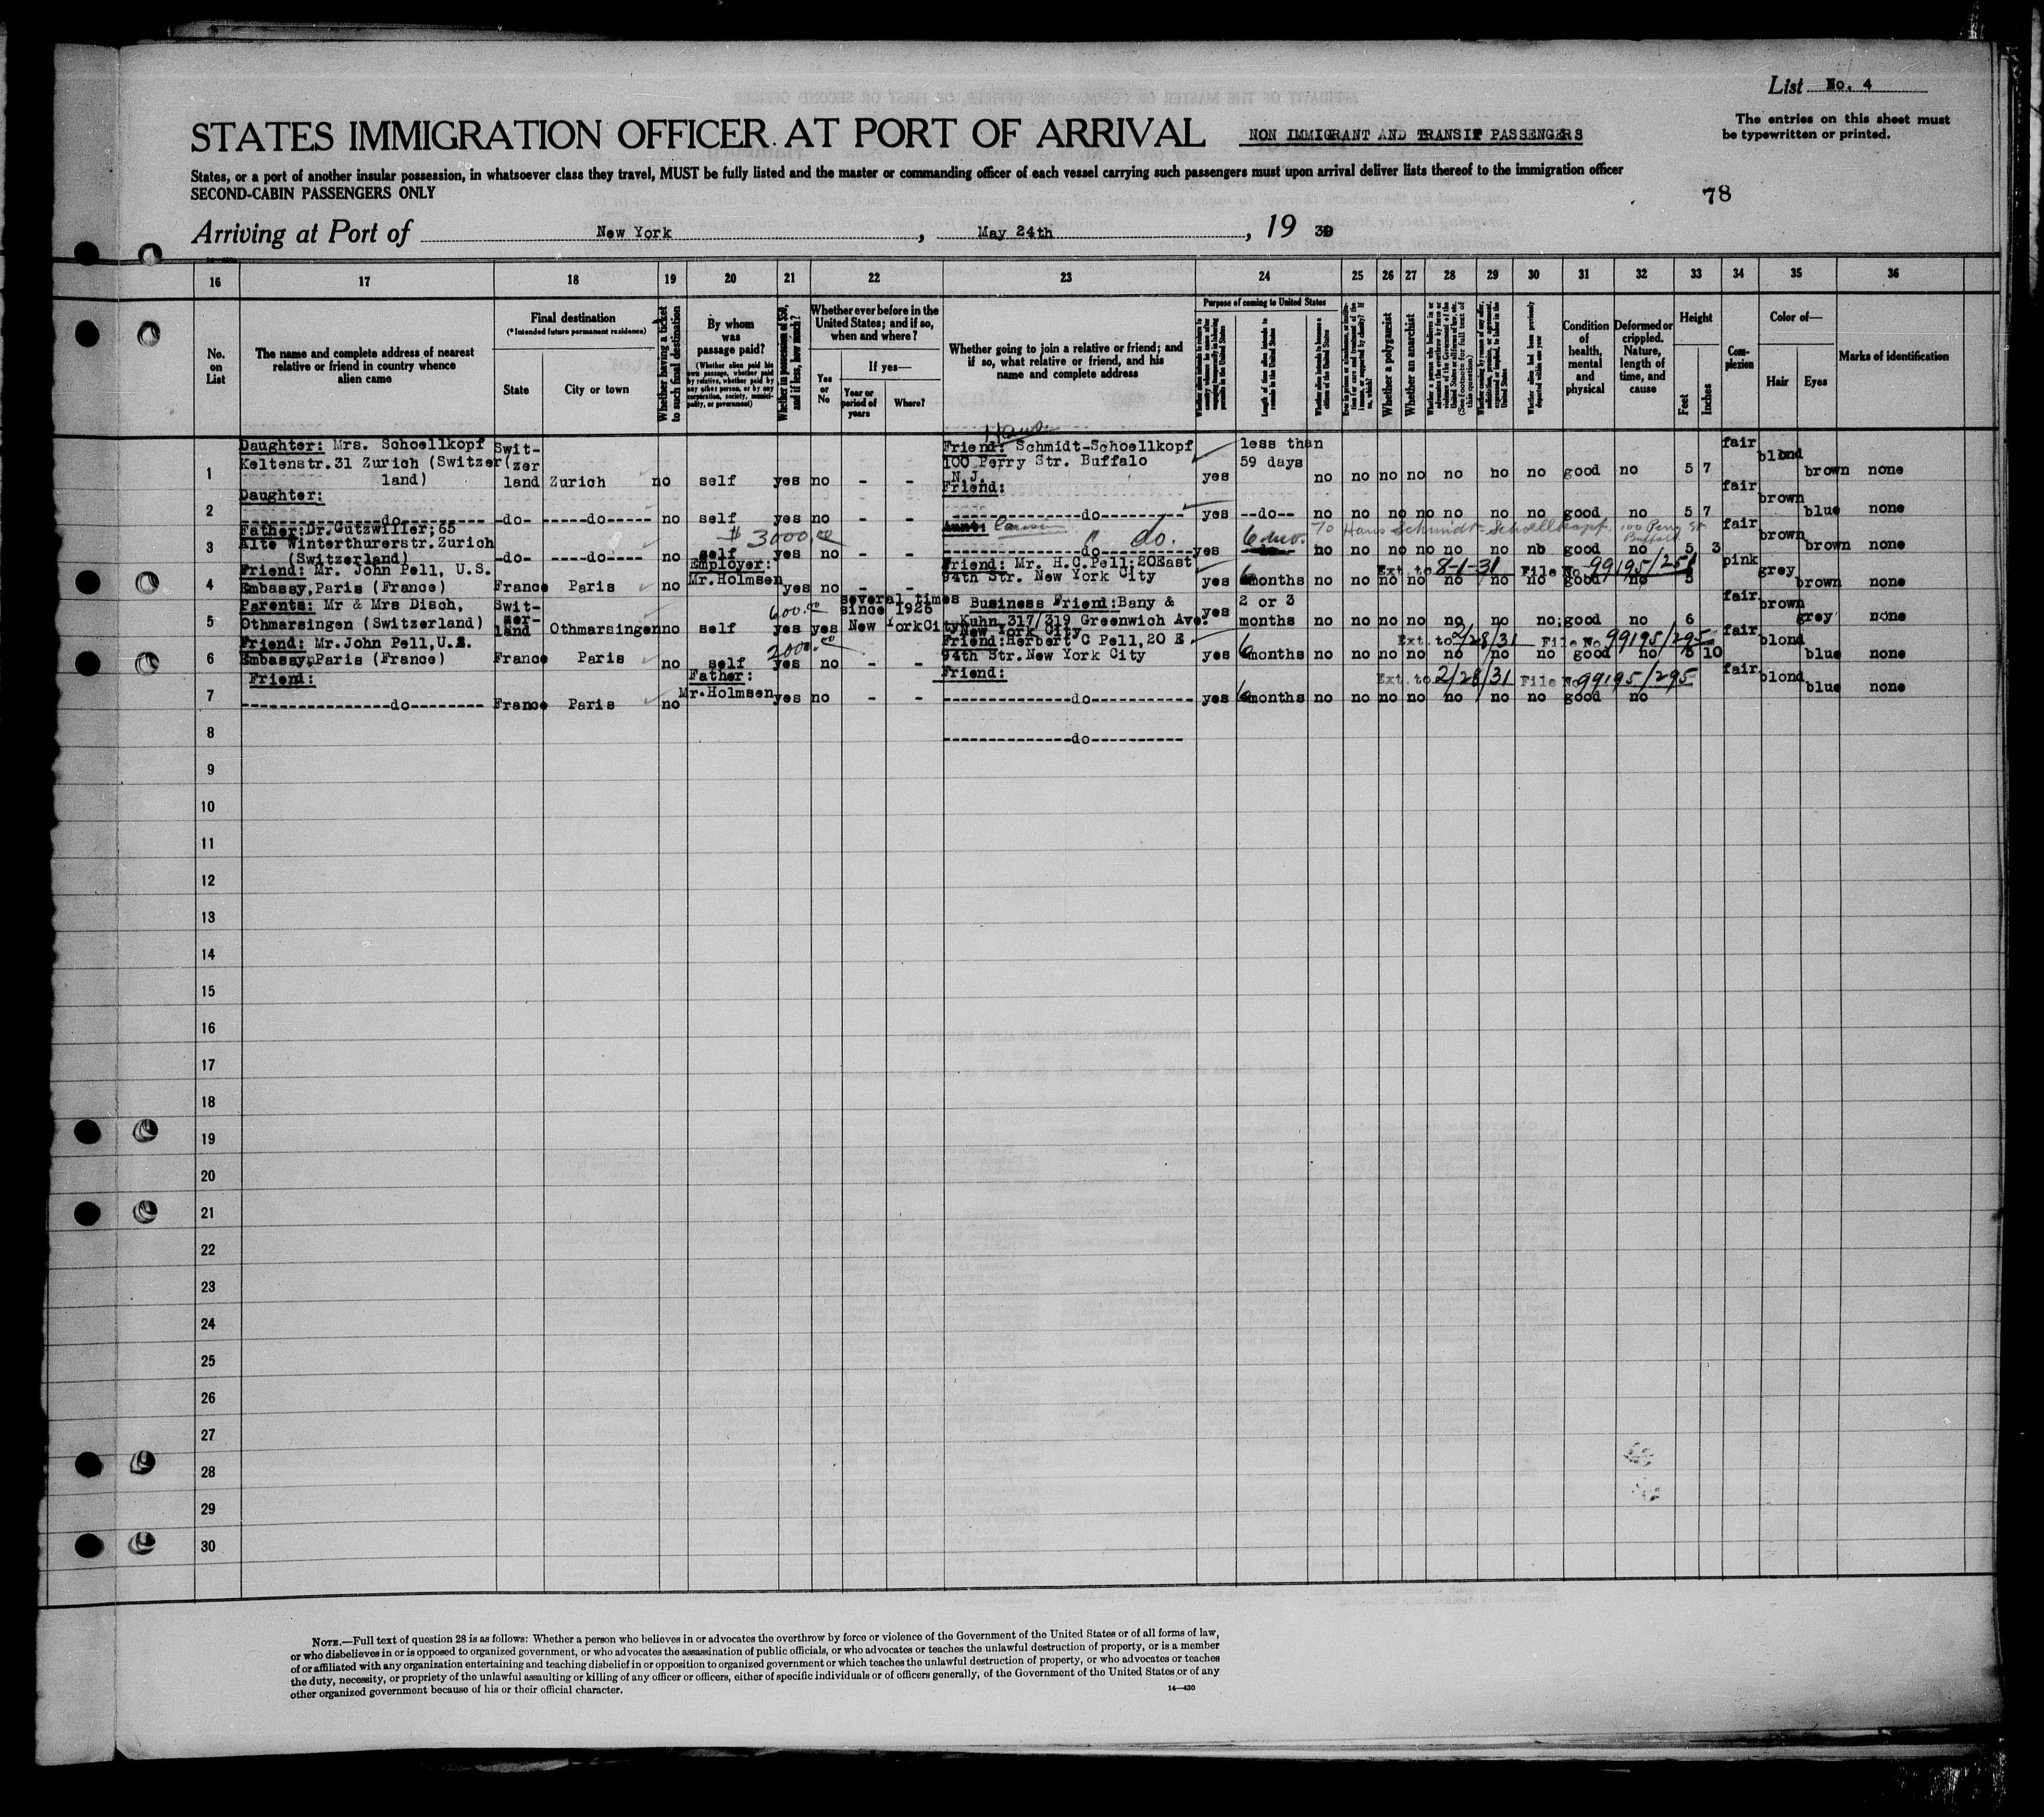 List No. 4
STATES IMMIGRATION OFFICER AT PORT OF ARRIVAL NON IMMIGRANT AND TRANSIT PASSENGERS
The entries on this sheet must
be typewritten or printed.
States, or a port of another insular possession, in whatsoever class they travel, MUST be fully listed and the master or commanding officer of each vessel carrying such passengers must upon arrival deliver lists thereof to the immigration officer
SECOND-CABIN PASSENGERS ONLY
78
Arriving at Port of New York, May 24th, 19 30
16 17 18 19 20 21 22 23 24 25 26 27 28 29 30 31 32 33 34 35 36
No. on List
The name and complete address of nearest relative or friend in country whence alien came
Final destination
(*Intended future permanent residence)
State
City or town
Whether having a ticket to such final destination
By whom was passage paid?
(Whether alien paid his own passage, whether paid by relative, whether paid by any other person, or by any corporation, society, municipality, or government)
Whether in possession of $50, and if less, how much?
Whether ever before in the United States; and if so, when and where?
Yes or No
If yes—
Year or period of years
Where?
Whether going to join a relative or friend; and if so, what relative or friend, and his name and complete address
Purpose of coming to United States
Length of time alien intends to remain in the United States
Whether alien intends to become a citizen of the United States
Whether a polygamist
Whether an anarchist
Whether alien had been previously deported within one year
Condition of health, mental and physical
Deformed or crippled. Nature, length of time, and cause
Height
Feet
Inches
Complexion
Color of—
Hair
Eyes
Marks of identification
1 Daughter: Mrs. Schoellkopf Keltenstr.31 Zurich (Switzerland) Switzerland Zurich no self yes no - - Hans Friend: Schmidt-Schoellkopf 100 Perry Str. Buffalo N.J. yes less than 59 days no no no no no no no good no 5 7 fair blond brown none
2 Daughter: do -do- do no self yes no - - Friend: do yes --do-- no no no no no no no good no 5 7 fair brown blue none
3 Father:Dr.Gutzwiller;65 Alte Winterthurerstr.Zurich (Switzerland) -do- do no self $3000.00 yes no - - Aunt: do " do. yes 6 mo. no no no no no no no good no 5 3 fair brown brown none
To Hans Schmidt-Schoellkopf, 100 Perry St. Buffalo
4 Friend: Mr. John Pell, U.S. Embassy,Paris (France) France Paris no Employer: Mr.Holmsen yes no - - Friend: Mr. H.C.Pell;20East 94th Str. New York City yes 6 months no no no no no no no good no 5 pink grey brown none
Ext. to 8-1-31 File No. 99195/251
5 Parents: Mr & Mrs Disch, Othmarsingen (Switzerland) Switzerland Othmarsingen no self 600.00 yes yes several times since 1926 New York City Business Friend:Bany & Kuhn,317/319 Greenwich Ave. New York City yes 2 or 3 months no no no no no no no;good no 6 fair brown grey none
6 Friend: Mr.John Pell,U.S. Embassy,Paris (France) France Paris no self 2000.00 yes no - - Friend:Herbert C Pell,20 E 94th Str.New York City yes 6 months no no no no no no no good no 5 10 fair blond blue none
Ext. to 2/28/31 File No. 99195/295
7 Friend: do France Paris no Father: Mr.Holmsen yes no - - Friend: do yes 6 months no no no no no no no good no fair blond blue none
Ext. to 2/28/31 File No. 99195/295
8 do
9
10
11
12
13
14
15
16
17
18
19
20
21
22
23
24
25
26
27
28
29
30
NOTE.—Full text of question 28 is as follows: Whether a person who believes in or advocates the overthrow by force or violence of the Government of the United States or of all forms of law,
or who disbelieves in or is opposed to organized government, or who advocates the assassination of public officials, or who advocates or teaches the unlawful destruction of property, or is a member
of or affiliated with any organization entertaining and teaching disbelief in or opposition to organized government or which teaches the unlawful destruction of property, or who advocates or teaches
the duty, necessity, or propriety of the unlawful assaulting or killing of any officer or officers, either of specific individuals or of officers generally, of the Government of the United States or of any
other organized government because of his or their official character.
14—430